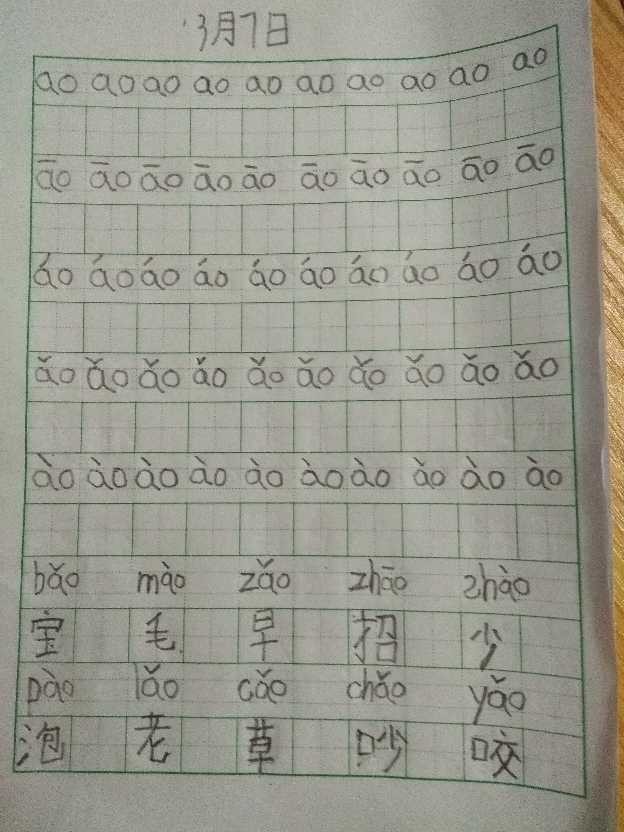 3月7日
ao ao ao ao ao ao ao ao ao ao
āo āo āo āo āo āo āo āo āo āo
áo áo áo áo áo áo áo áo áo áo
ǎo ǎo ǎo ǎo ǎo ǎo ǎo ǎo ǎo ǎo
ào ào ào ào ào ào ào ào ào ào
bǎo mào zǎo zhāo zhào
宝 毛 早 招 少
pào lǎo cǎo chǎo yǎo
泡 老 草 吵 咬